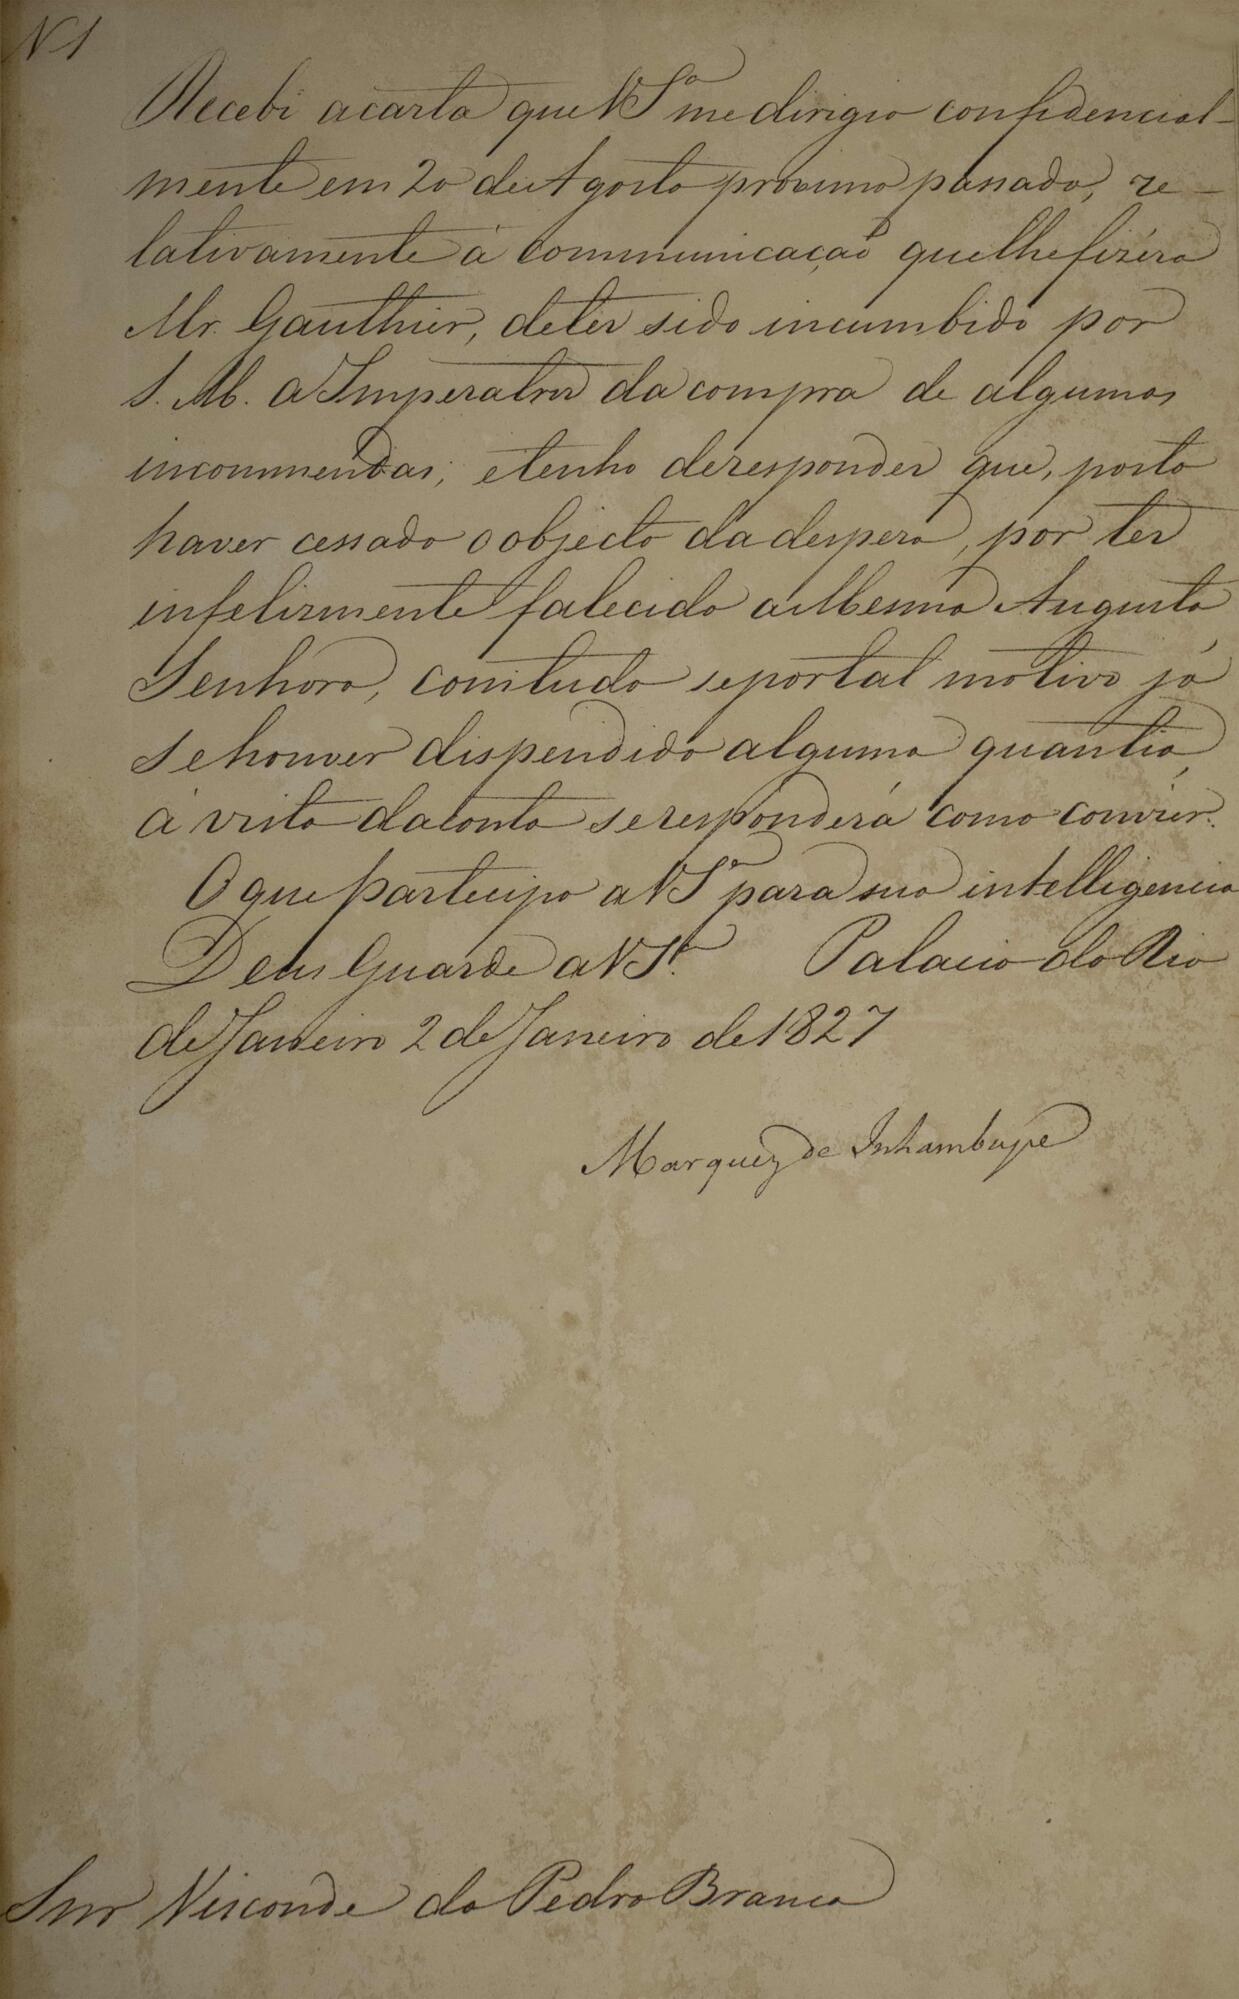 N 1
Recebi a carta que VSª me dirigio confidencial-
mente em 20 de Agosto proximo passado, re-
lativamente á communicação que lhe fizéra
Mr. Gauthier, de ter sido incumbido por
S. M. a Imperatriz da compra de algumas
incommendas; e tenho de responder que, posto
haver cessado o objecto da despeza, por ter
infelizmente falecido a Mesma Augusta
Senhora, comtudo se por tal motivo já
se houver dispendido alguma quantia,
á vista da conta se responderá como convier.
O que participo a VSª para sua intelligencia
Deus Guarde a VSª. Palacio do Rio
de Janeiro 2 de Janeiro de 1827
Marquez de Inhambupe
Snr Visconde da Pedra Branca